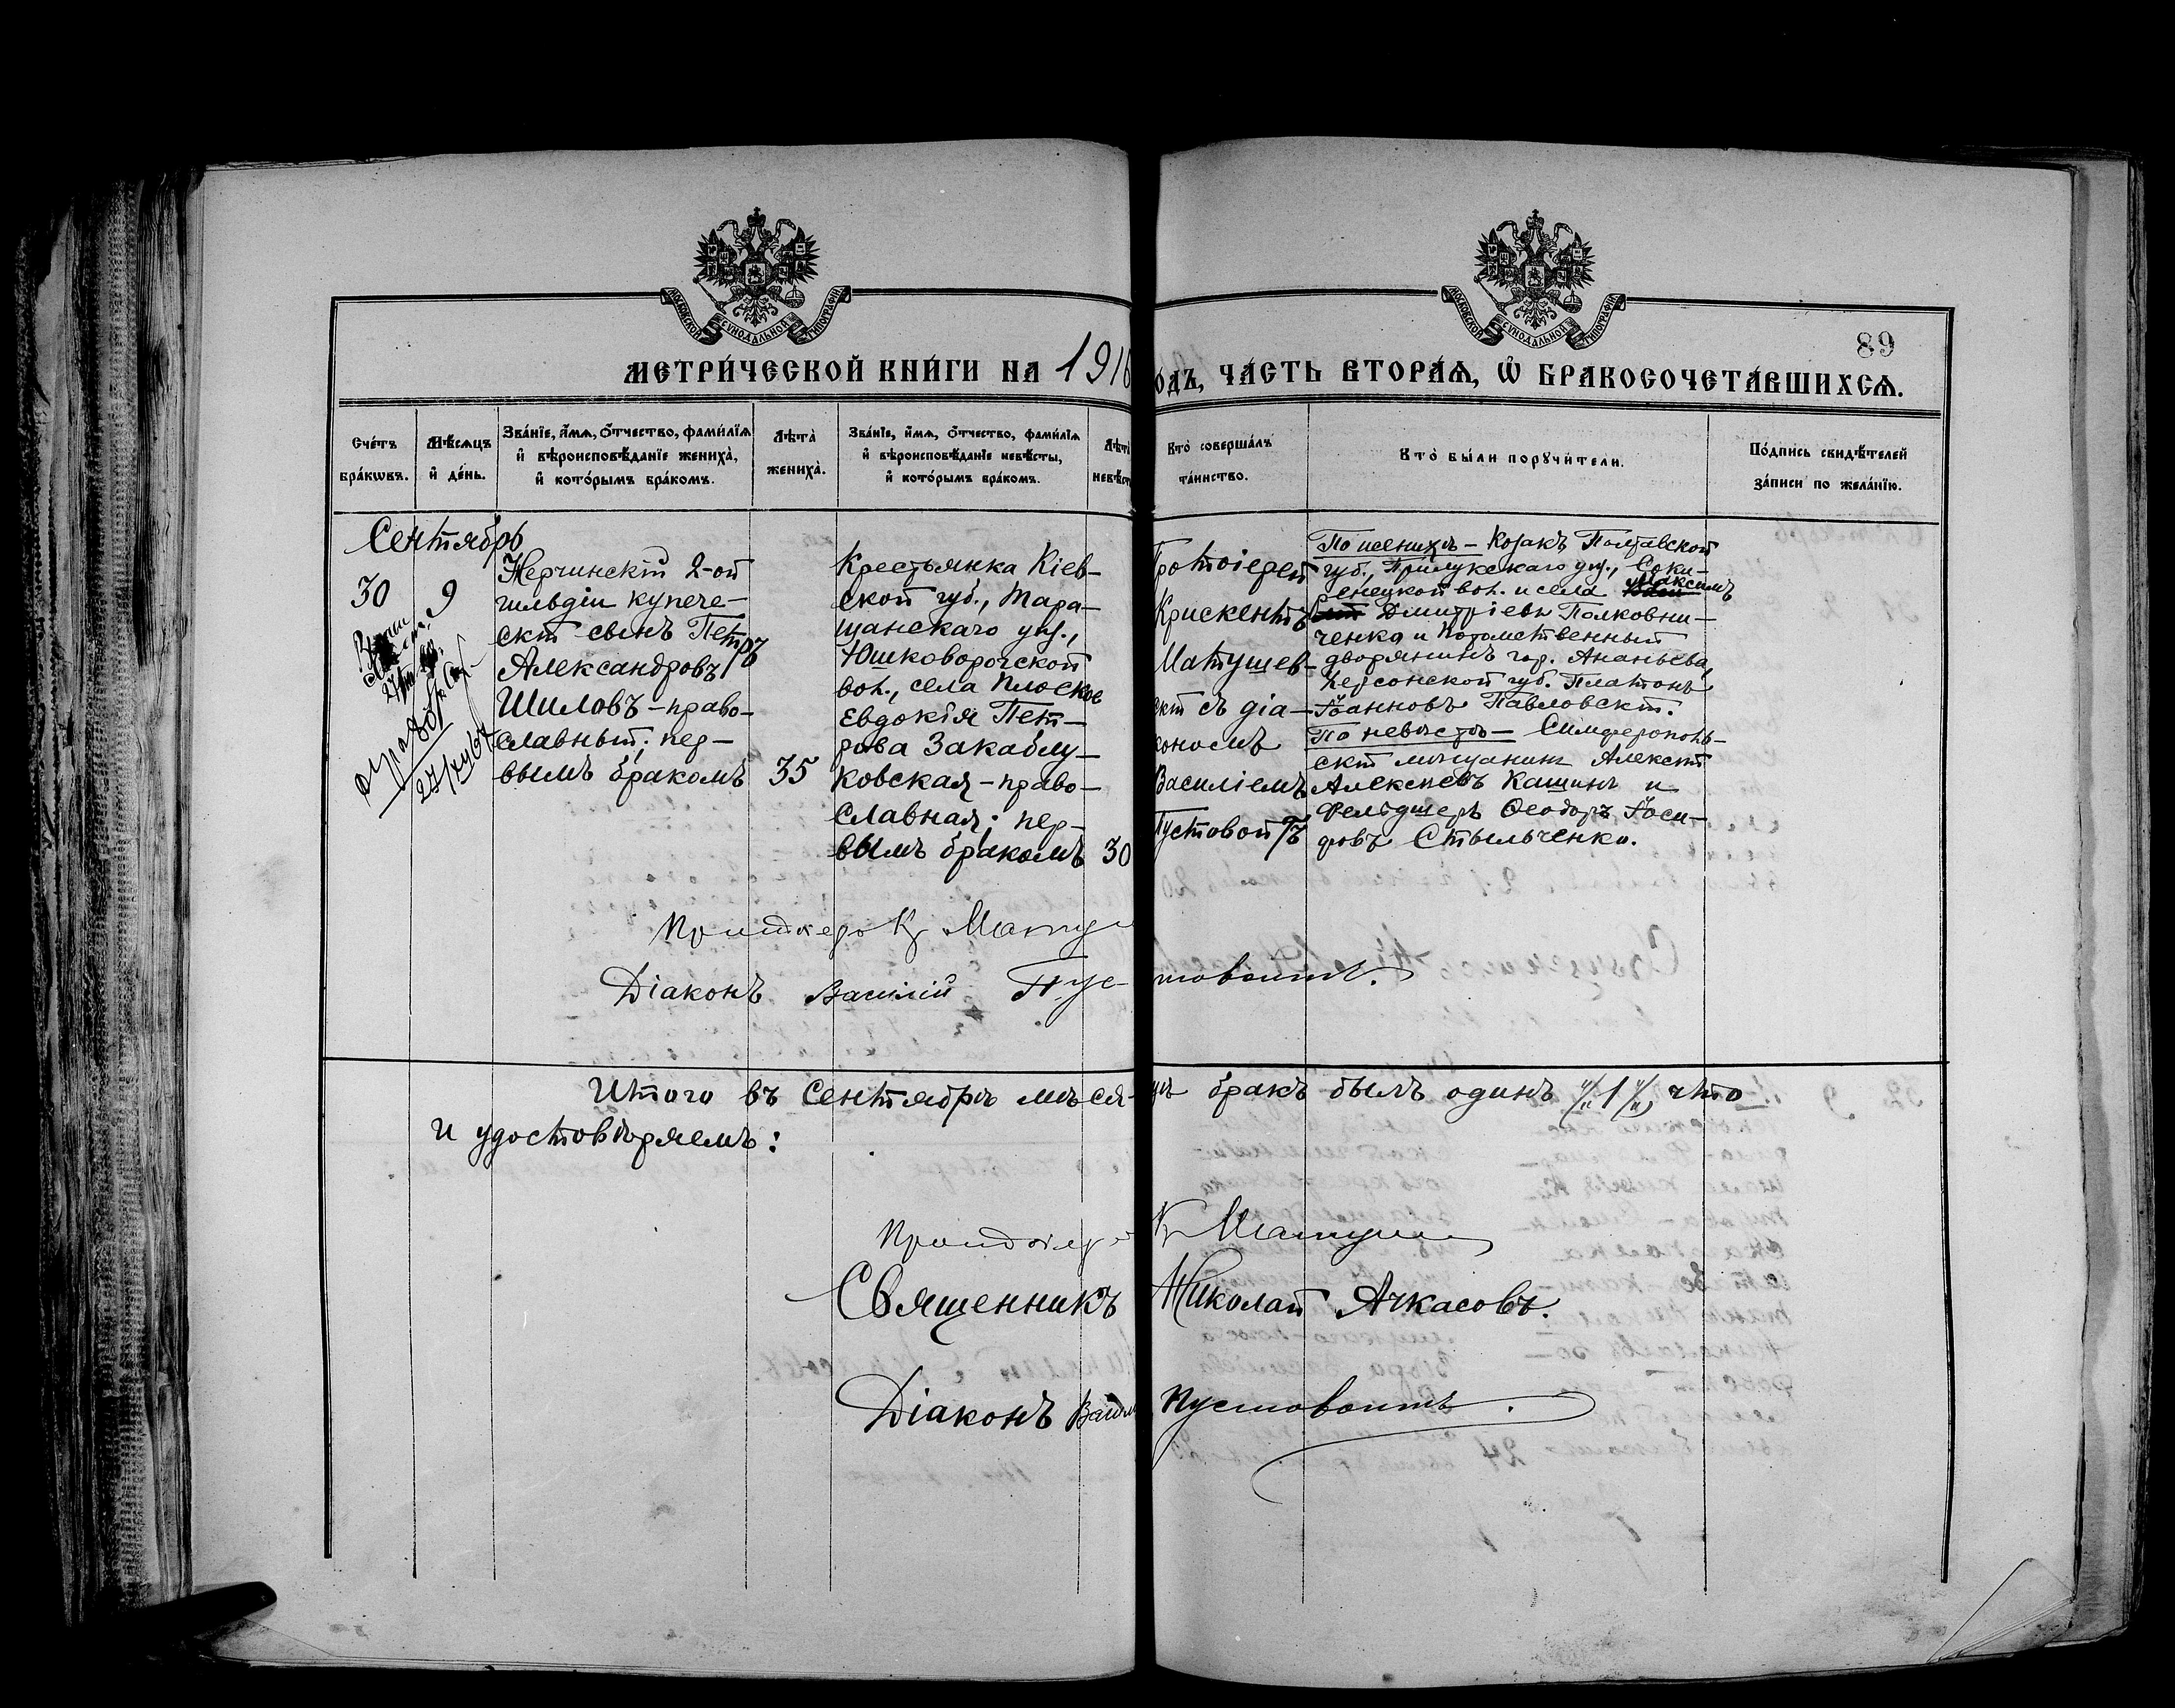 МОСКОВСКОЙ СѴНОДАЛЬНОЙ ТИПОГРАФІИ
МОСКОВСКОЙ СѴНОДАЛЬНОЙ ТИПОГРАФІИ
89
МЕТРИ́ЧЕСКОЙ КНИ́ГИ НА 1916
ОДЪ, ЧА́СТЬ ВТОРА́Ѧ, Ѽ БРАКОСОЧЕТА́ВШИХСѦ.
Сче́тъ бра́кωвъ.
Мѣ́сѧцъ и҆ де́нь.
Зва́нїе, и҆́мѧ, ѻ҆́тчество, фами́лїѧ и҆ вѣроисповѣ́данїе жениха̀, и҆ кото́рымъ бра́комъ.
Лѣта̀ жениха̀.
Зва́нїе, и҆́мѧ, ѻ҆́тчество, фами́лїѧ и҆ вѣроисповѣ́данїе невѣ́сты, и҆ кото́рымъ бра́комъ.
Лѣта̀ невѣст
Кто̀ соверша́лъ та́инство.
Кто̀ бы́ли порꙋчи́тели.
По́дпись свидѣ́телей за́писи по жела́нїю.
Сентябрь
30
9
Нерчинскій 2-ой
гильдіи купече-
скій сынъ Петръ
Александровъ
Шиловъ – право-
славный; пер-
вымъ бракомъ
35
Крестьянка Кіев-
ской губ., Тара-
щанскаго уѣз.,
Юшковорогской
вол., села Плоское
Евдокія Пет-
рова Закаблу-
ковская – право-
славная; пер-
вымъ бракомъ
30
Протоіерей
Крискентъ
Матушев-
скій съ діа-
кономъ
Василіемъ
Пустовойтъ
По женихѣ – Козакъ Полтавской
губ., Прилукскаго уѣз., Соки-
ренецкой вол. и села Максимъ
Дмитріевъ Полковни-
ченко и потомственный
дворянинъ гор. Ананьева,
Херсонской губ. Платонъ
Іоанновъ Павловскій.
По невѣстѣ – Симферополь-
скій мѣщанинъ Алексѣй
Алексѣевъ Кашинъ и
фельдшеръ Ѳеодоръ Іоси-
фовъ Стыльченко.
Протоіерей К. Матуш
Діаконъ Василій Пустовойтъ.
Итого въ Сентябрѣ мѣсяцѣ бракъ былъ одинъ "/"1"/", что
и удостовѣряемъ:
Протоіерей К. Матуш
Священникъ Николай Ачкасовъ.
Діаконъ Васил Пустовойтъ.